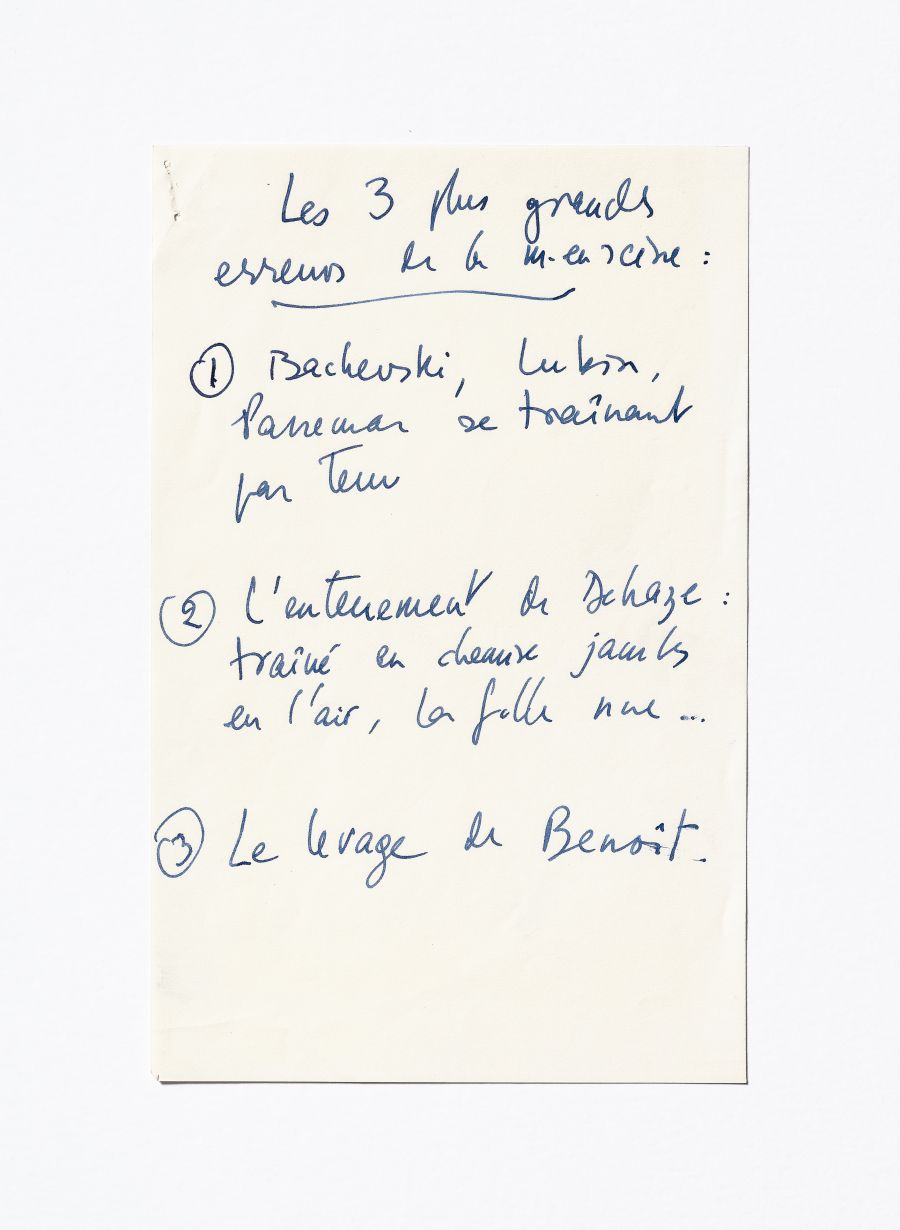 Les 3 plus grands
erreurs de la m.en scène :
① Bachevski, Lubin,
Parreman se traînant
par Terre
② L'enterrement de Dehaze :
traîné en chemise jambes
en l'air, la folle nue ...
③ Le levage de Benoît.